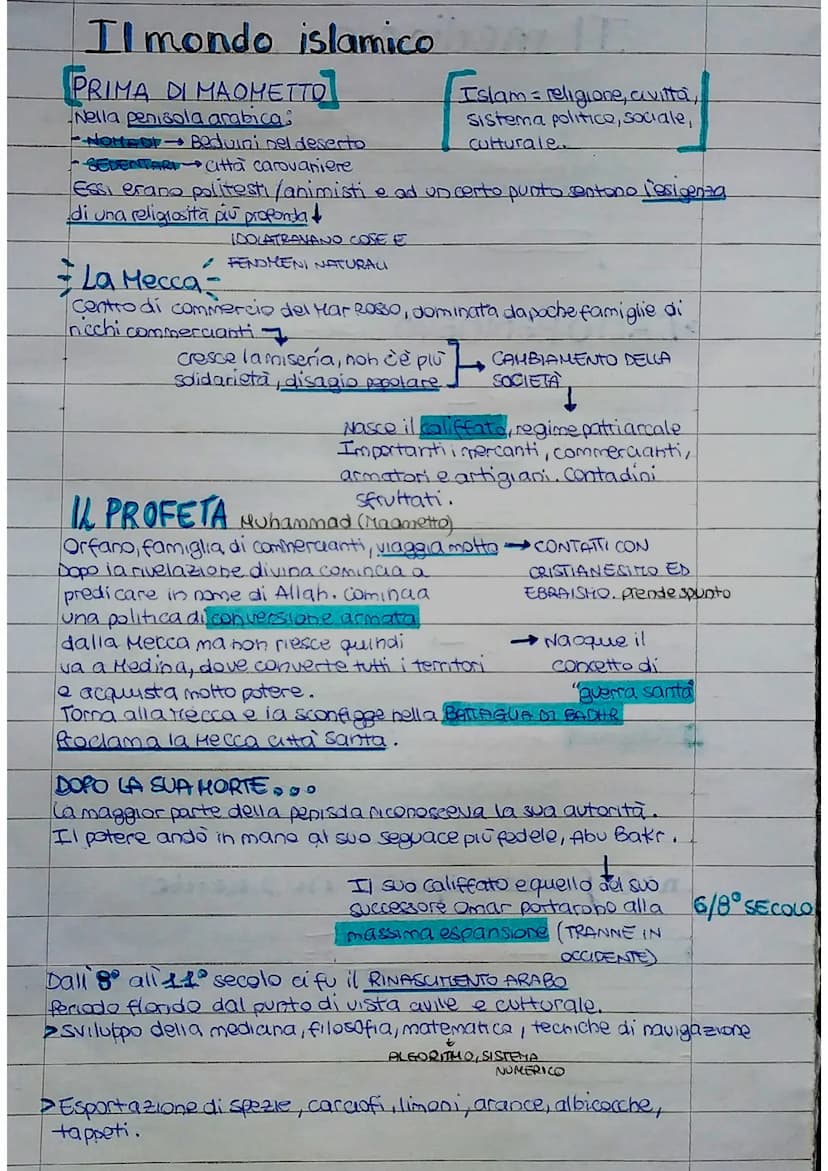 Il mondo islamico
[PRIMA DI MAOMETTO]
Islam = religione, civiltà,
sistema politico, sociale,
culturale.
Nella penisola arabica:
- NOMADI → Beduini nel deserto
- SEDENTARI → città carovaniere
Essi erano politesti/animisti e ad un certo punto sentono l'esigenza
di una religiosità più profonda ↓
IDOLATRAVANO COSE E
FENOMENI NATURALI
La Mecca
Centro di commercio del Mar Rosso, dominata da poche famiglie di
ricchi commercianti
cresce la miseria, non c'è più
solidarietà, disagio popolare
→ CAMBIAMENTO DELLA
SOCIETÀ
↓
Nasce il califfato, regime patriarcale
Importanti i mercanti, commercianti,
armatori e artigiani. Contadini
sfruttati.
IL PROFETA Muhammad (Maometto)
Orfano, famiglia di commercianti, viaggia molto → CONTATTI CON
CRISTIANESIMO ED
EBRAISMO. prende spunto
Dopo la rivelazione divina comincia a
predicare in nome di Allah. Cominaa
una politica di conversione armata
dalla Mecca ma non riesce quindi
va a Medina, dove converte tutti i territori
e acquista molto potere.
→ Nacque il
concetto di
"guerra santa"
Torna alla Mecca e la sconfigge nella BATTAGLIA DI BADHR
Proclama la Mecca città santa.
DOPO LA SUA MORTE...
La maggior parte della penisola riconosceva la sua autorità.
Il potere andò in mano al suo seguace più fedele, Abu Bakr.
↓
Il suo califfato e quello del suo
successore Omar portarono alla
massima espansione (TRANNE IN
OCCIDENTE)
6/8° SECOLO
Dall'8° all'11° secolo ci fu il RINASCIMENTO ARABO
Periodo florido dal punto di vista civile e culturale.
> Sviluppo della medicina, filosofia, matematica, tecniche di navigazione
ALGORITMO, SISTEMA
NUMERICO
> Esportazione di spezie, carciofi, limoni, arance, albicocche,
tappeti.